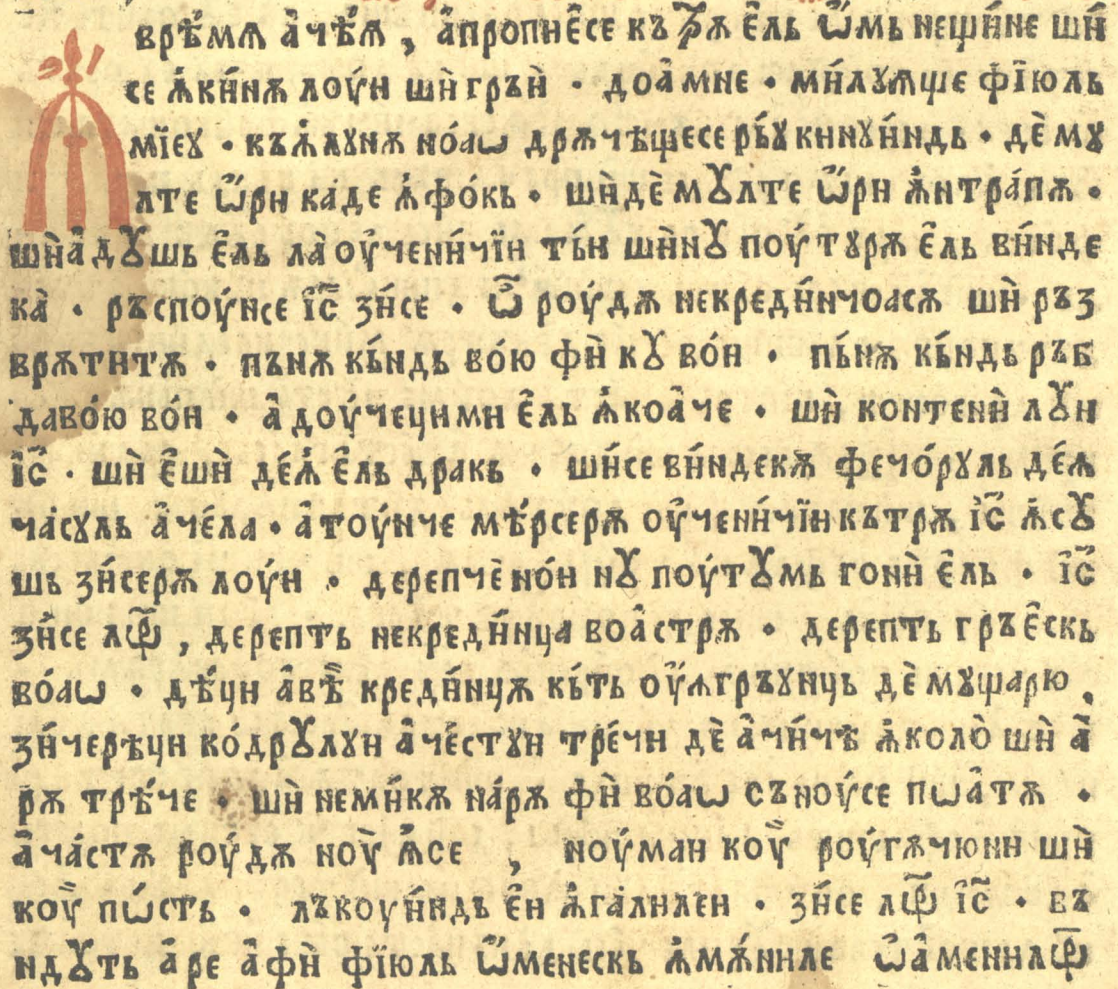 врѣ́мѧ а҆чѣ́ѧ , а҆пропїе҆се къ трѫ е҆ль ѡ҆мь нещи́не ши̑
се ꙟ҆ки́нѫ лоу́и шѝ гръѝ · доа҆мне · ми́лꙋѧще фїюль
мїеꙋ · къꙟ҆лꙋнѫ но́аѡ дрѫчѣ́щесе рьꙋ кинꙋи́ндь · дѐ мꙋ
лте ѡ҆ри ка́де ꙟ҆фо́кь · шѝдѐ мꙋлте ѡ҆ри ꙟ҆нтра́пѫ ·
шѝа҆дꙋшь е҆ль ла̀ оу҆чени́чїи ты́и ши́нꙋ поу́тꙋрѫ е҆ль ви́нде
ка̀ · ръспоу́нсе і҆с҃ зи́се · ѽ роу́дѫ некреди́нчоасѫ шѝ ръз
врѫтитѫ · пънѫ кы́ндь во́ю фѝ кꙋ во́и · пы́нѫ кы́ндь ръб
даво́ю во́и · а҆доу́чецими е҆ль ꙟ҆коа҆че · шѝ контенѝ лꙋи
і҆с҃ · шѝ е҆шѝ де́ꙟ҆ е҆ль дракь · ши́се ви́ндекѫ фечо́рꙋль де́ѧ
ча́сꙋль а҆че́ла · а҆тоу́нче ме́рсерѫ оу҆чени́чїи кътрѫ і҆с҃ ꙟ҆сꙋ
шь зи́серѫ лоу́и · дерепчѐ но́и нꙋ поу́тꙋмь гонѝ е҆ль · і҆с҃
зи́се лѡⷬ҇ , дерепть некреди́нца воа҆стрѫ · дерепть гръе҆скь
во́аѡ · дѣ́ци а҆вѣⷬ҇ креди́нцѫ кы́ть оу҆ѧгръꙋнць дѐ мꙋщарю ,
зи́черѣци ко́дрꙋлꙋи а҆че́стꙋи тре́чи дѐ а҆чи́чѣ ꙟ҆коло̀ шѝ а҆
рѫ трѣ́че · шѝ неми́кѫ на́рѫ фѝ во́аѡ съноу́се поа҆тѫ ·
а҆ча́стѫ роу́дѫ ноу̀ ꙟ҆се , ноу́май коу̀ роу́гѫчюни шѝ
коу̀ по́сть · лъкоуи́ндь е҆и ꙟ҆гали́леи · зи́се лѡⷬ҇ і҆с҃ · въ
ндꙋть а҆ре а҆фѝ фїюль ѡ҆менескь ꙟ҆мѫ́ниле ѡ҆а҆менилѡⷬ҇